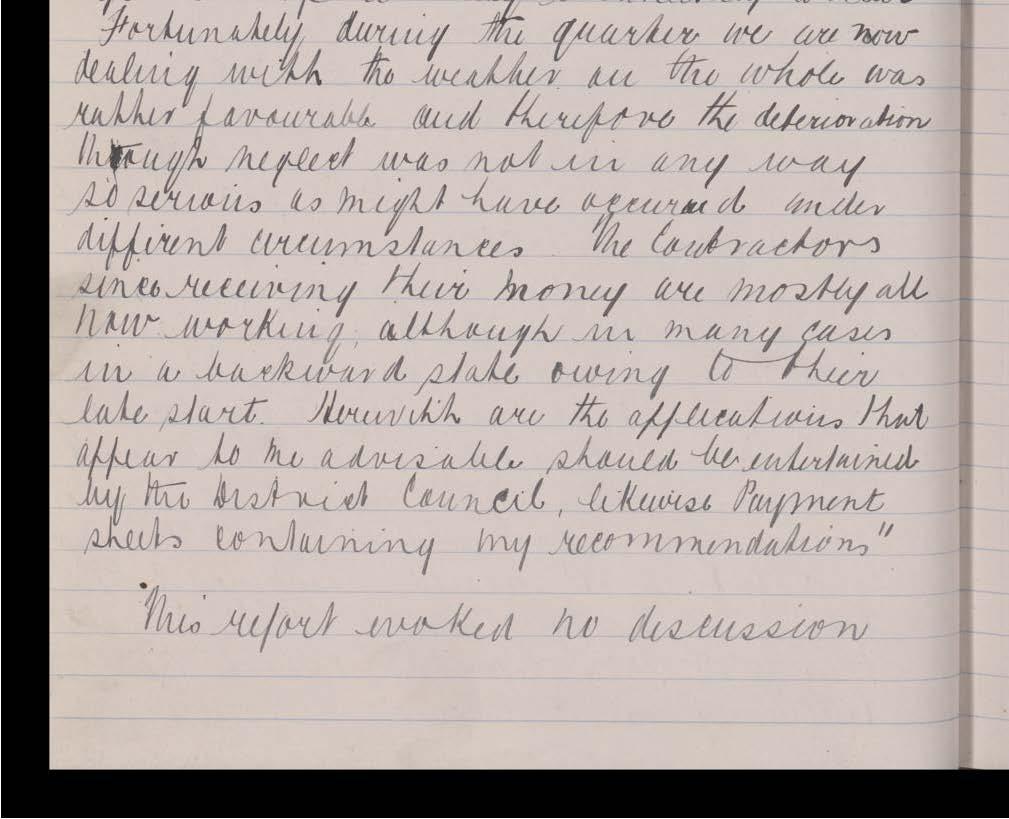 Fortunately during the quarter we are now
dealing with the weather on the whole was
rather favourable and therefore the deterioration
through neglect was not in any way
so serious as might have occurred under
different circumstances The Contractors
since receiving their money are mostly all
now working, although in many cases
in a backward state owing to their
late start. Herewith are the applications that
appear to me advisable should be entertained
by the District Council, likewise Payment
sheets containing my recommendations"
This report evoked no discussion